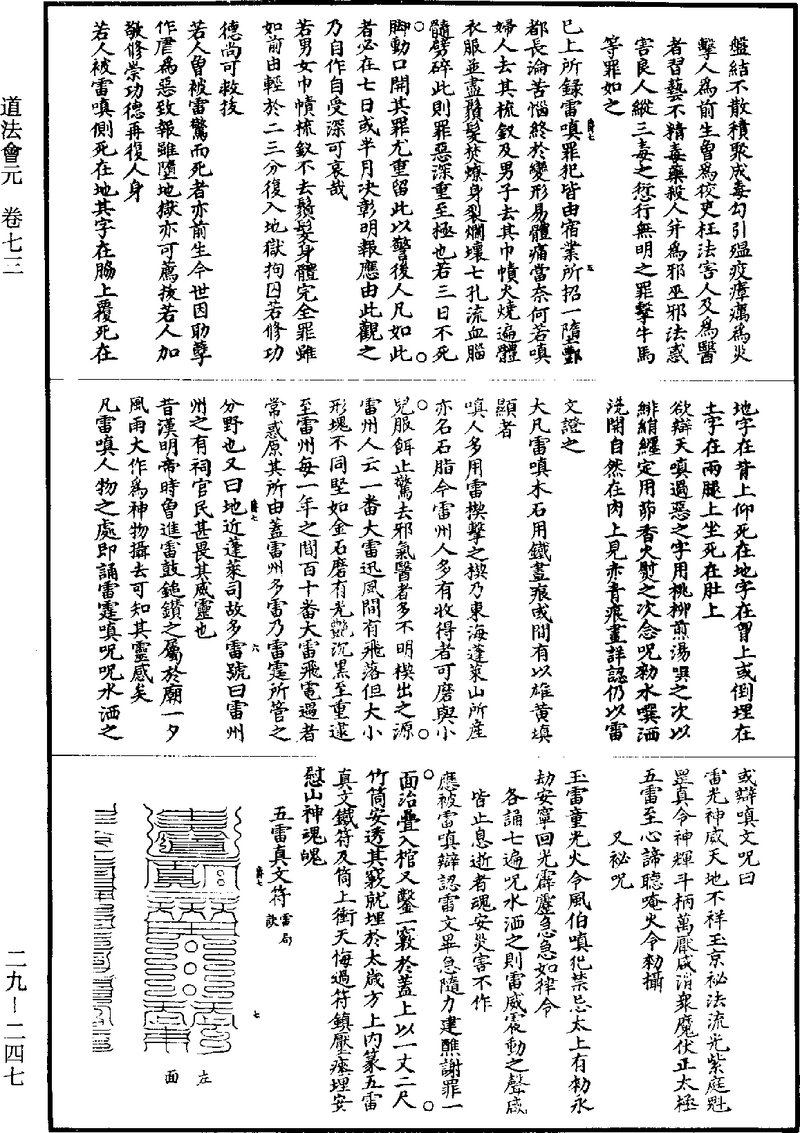 道法會元　卷七三
盤結不散積聚成毒勾引瘟疫瘴癘為災
擊人為前生曾為狡吏枉法害人及為醫
者習藝不精毒藥殺人并為邪巫邪法惑
害良人縱三毒之愆行無明之罪擊牛馬
等罪如之
已上所錄雷嗔罪犯皆由宿業所招一墮酆
都長淪苦惱終於變形易體痛當奈何若嗔
婦人去其梳釵及男子去其巾幘火燒遍體
衣服並盡鬚髮焚燎身裂爛壞七孔流血腦
髓劈碎此則罪惡深重至極也若三日不死
脚動口開其罪尤重留此以警後人凡如此
者必在七日或半月决彰明報應由此觀之
乃自作自受深可哀哉
若男女巾幘梳釵不去鬚髮身體完全罪雖
如前由輕於二三分復入地獄拘囚若修功
德尚可救拔
若人曾被雷驚而死者亦前生今世因助孽
作曆為惡致報雖墮地獄亦可薦拔若人加
敬修崇功德再復人身
若人被雷嗔側死在地其字在脇上覆死在
地字在背上仰死在地字在胷上或倒埋在
土字在兩腿上坐死在肚上
欲辯天嗔過惡之字用桃柳煎湯噀之次以
緋絹纏定用茆香火熨之次念呪勑水噀洒
洗開自然在肉上見赤青痕畫詳認仍以雷
文證之
大凡雷嗔木石用鐵畫痕或間有以雄黃填
顯者
嗔人多用雷楔擊之楔乃東海蓬萊山所產
亦名石脂今雷州人多有收得者可磨與小
兒服餌止驚去邪氣醫者多不明楔出之源
雷州人云一番大雷迅風間有飛落但大小
形塊不同堅如金石磨有光艷沉黑至重逮
至雷州每一年之間百十番大雷飛電過者
常惑原其所由蓋雷州多雷乃雷霆所管之
分野也又曰地近蓬萊司故多雷號曰雷州
州之有祠官民甚畏其威靈也
昔漢明帝時魯進雷鼓鎚鑽之屬於廟一夕
風雨大作為神物攝去可知其靈感矣
凡雷嗔人物之處即誦雷霆嗔呪呪水洒之
或辯嗔文呪曰
雷光神威天地不祥玉京祕法流光紫庭魁
罡真令神輝斗柄萬厭咸消衆魔伏正太極
五雷至心諦聽唵火令勑攝
又祕呪
玉雷童光火令風伯嗔犯禁忌太上有勑永
劫安寧回光霹靂急急如律令
各誦七遍呪水洒之則雷威震動之聲咸
皆止息逝者魂安災害不作
應被雷嗔辯認雷文畢急隨力建醮謝罪一
面治疊入棺又鑿一竅於蓋上以一丈二尺
竹筒安透其竅就埋於太歲方上内篆五雷
真文鐵符及筒上衝天悔過符鎮壓瘞埋安
慰山神魂魄
五雷真文符雷局訣
左
面
二九－二四七